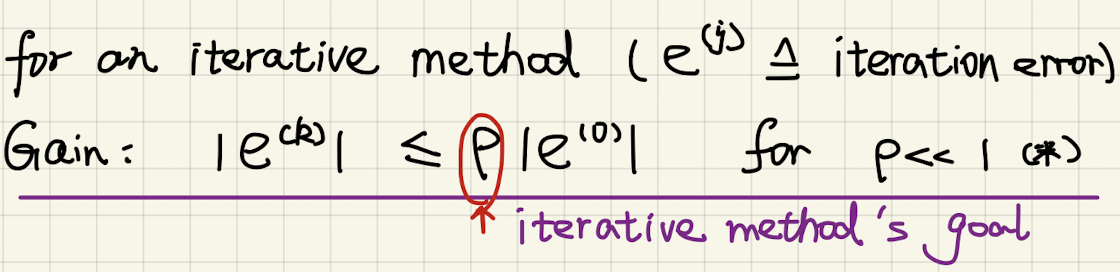 for an iterative method (e^(j) ≜ iteration error)
Gain: |e^(k)| ≤ ρ |e^(0)| for ρ<< 1 (*)
↑ iterative method's goal